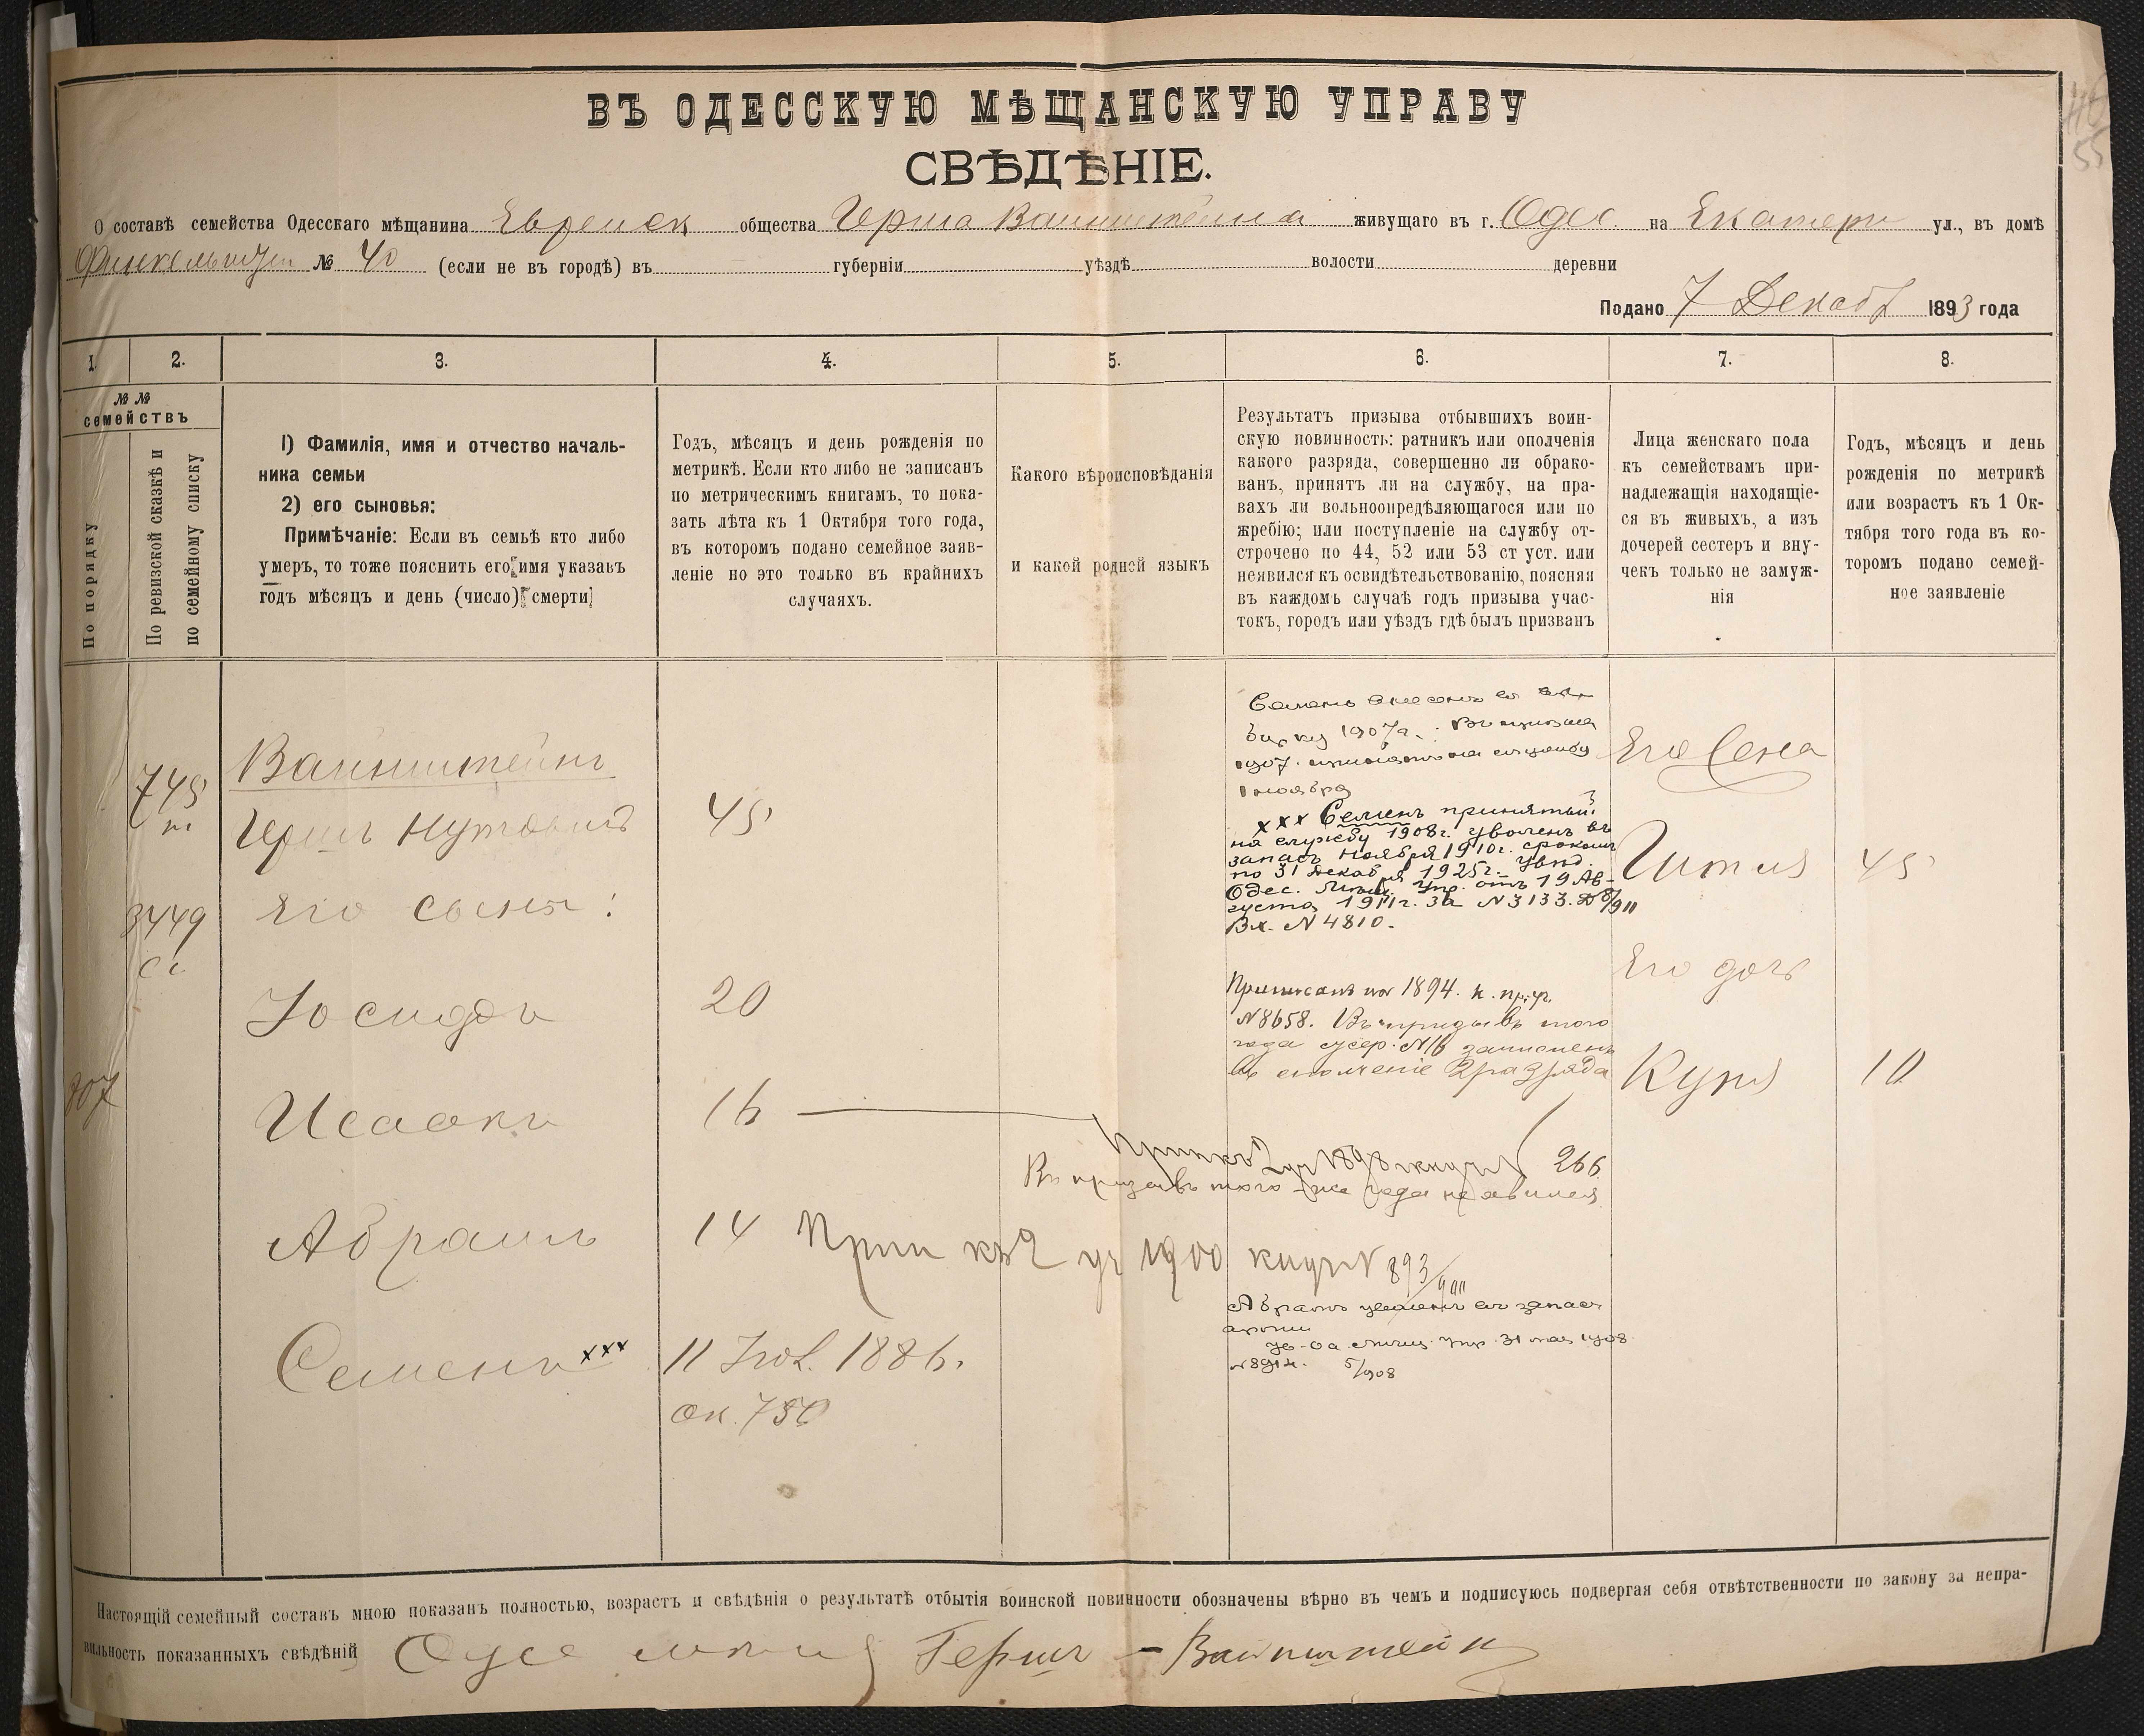 ВЪ ОДЕССКУЮ МѢЩАНСКУЮ УПРАВУ
СВѢДѢНІЕ.
О составѣ семейства Одесскаго мѣщанина Еврейск общества Герша Вайнштейна живущаго въ г. Одес. на Екатери ул., въ домѣ
№ 40 (если не въ городѣ) въ губерніи уѣздѣ волости деревни
Подано 7 Декабр 1893 года
1. 2. 3. 4. 5. 6. 7. 8.
№ №
семействъ
По порядку
По ревизской сказкѣ и
по семейному списку
I) Фамилія, имя и отчество началь-
ника семьи
2) его сыновья:
Примѣчаніе: Если въ семьѣ кто либо
умеръ, то тоже пояснить его имя указавъ
годъ мѣсяцъ и день (число) смерти
Годъ, мѣсяцъ и день рожденія по
метрикѣ. Если кто либо не записанъ
по метрическимъ книгамъ, то пока-
зать лѣта къ 1 Октября того года,
въ которомъ подано семейное заяв-
леніе но это только въ крайнихъ
случаяхъ.
Какого вѣроисповѣданія
и какой родной языкъ
Результатъ призыва отбывшихъ воин-
скую повинность: ратникъ или ополченія
какого разряда, совершенно ли обрако-
ванъ, принятъ ли на службу, на пра-
вахъ ли вольноопредѣляющагося или по
жребію; или поступленіе на службу от-
строчено по 44, 52 или 53 ст уст. или
неявился къ освидѣтельствованію, поясняя
въ каждомъ случаѣ годъ призыва учас-
токъ, городъ или уѣздъ гдѣ былъ призванъ
Лица женскаго пола
къ семействамъ при-
надлежащія находящіе-
ся въ живыхъ, а изъ
дочерей сестеръ и вну-
чекъ только не замуж-
нія
Годъ, мѣсяцъ и день
рожденія по метрикѣ
или возрастъ къ 1 Ок-
тября того года въ ко-
торомъ подано семей-
ное заявленіе
745
м
3449
сс
807
Вайнштейнъ
Гершъ Нутовичъ 45
Его сыны:
Іосифъ 20
Исаакъ 16
Абрамъ 14
Семенъ xxx 11 Іюл. 1886.
750
Семенъ внесенъ въ
1907г. Въ призыв
1907 принятъ на службу
1 ноября
xxx Семенъ принятый
на службу 1908г. уволенъ въ
запасъ ноября 1910г. срокомъ
по 31 декабря 1925г. увѣд.
Одес. Мѣщ. Упр. отъ 19 Ав-
густа 1911г. за N 3133.
Вх. N 4810.
Приписанъ по 1894. к. пр. уч.
N 8658. Въ призывъ того
года зачисленъ
въ ополченіе 2 разряда
266
Въ призывъ того-же года не явился
Прип къ 2 уч 1900 к пр уч N 893/900
Абрамъ уволенъ въ запас
арміи
ув-ие мѣщ. упр. 31 мая 1908
5/908
Его жена
Гитля 45
Его дочь
Куря 10
Настоящій семейный составъ мною показанъ полностью, возрастъ и свѣдѣнія о результатѣ отбытія воинской повинности обозначены вѣрно въ чемъ и подписуюсь подвергая себя отвѣтственности по закону за непра-
вильность показанныхъ свѣдѣній Гершъ - Вайнштейн